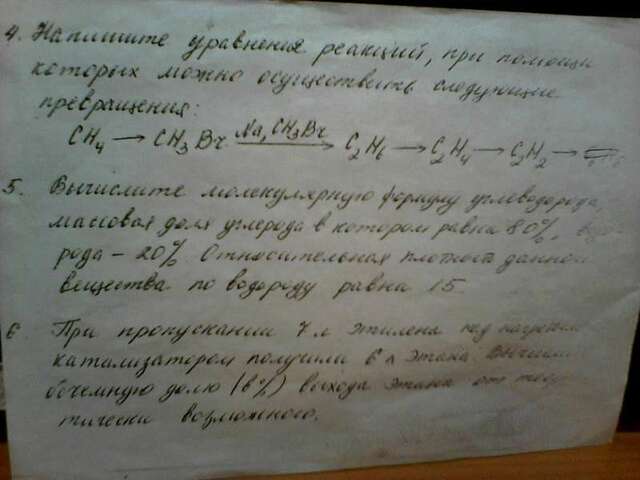 4. Напишите уравнения реакций, при помощи
которых можно осуществить следующие
превращения:
CH4 → CH3Br Na, CH3Br → C2H6 → C2H4 → C2H2 →
5. Вычислите молекулярную формулу углеводорода,
массовая доля углерода в котором равна 80%,
рода – 20%. Относительная плотность данного
вещества по водороду равна 15
6 При пропускании 7 л этилена над
катализатором получили 6 л этана. Вычисли
объемную долю (в %) выхода этана от теоре
тически возможного.